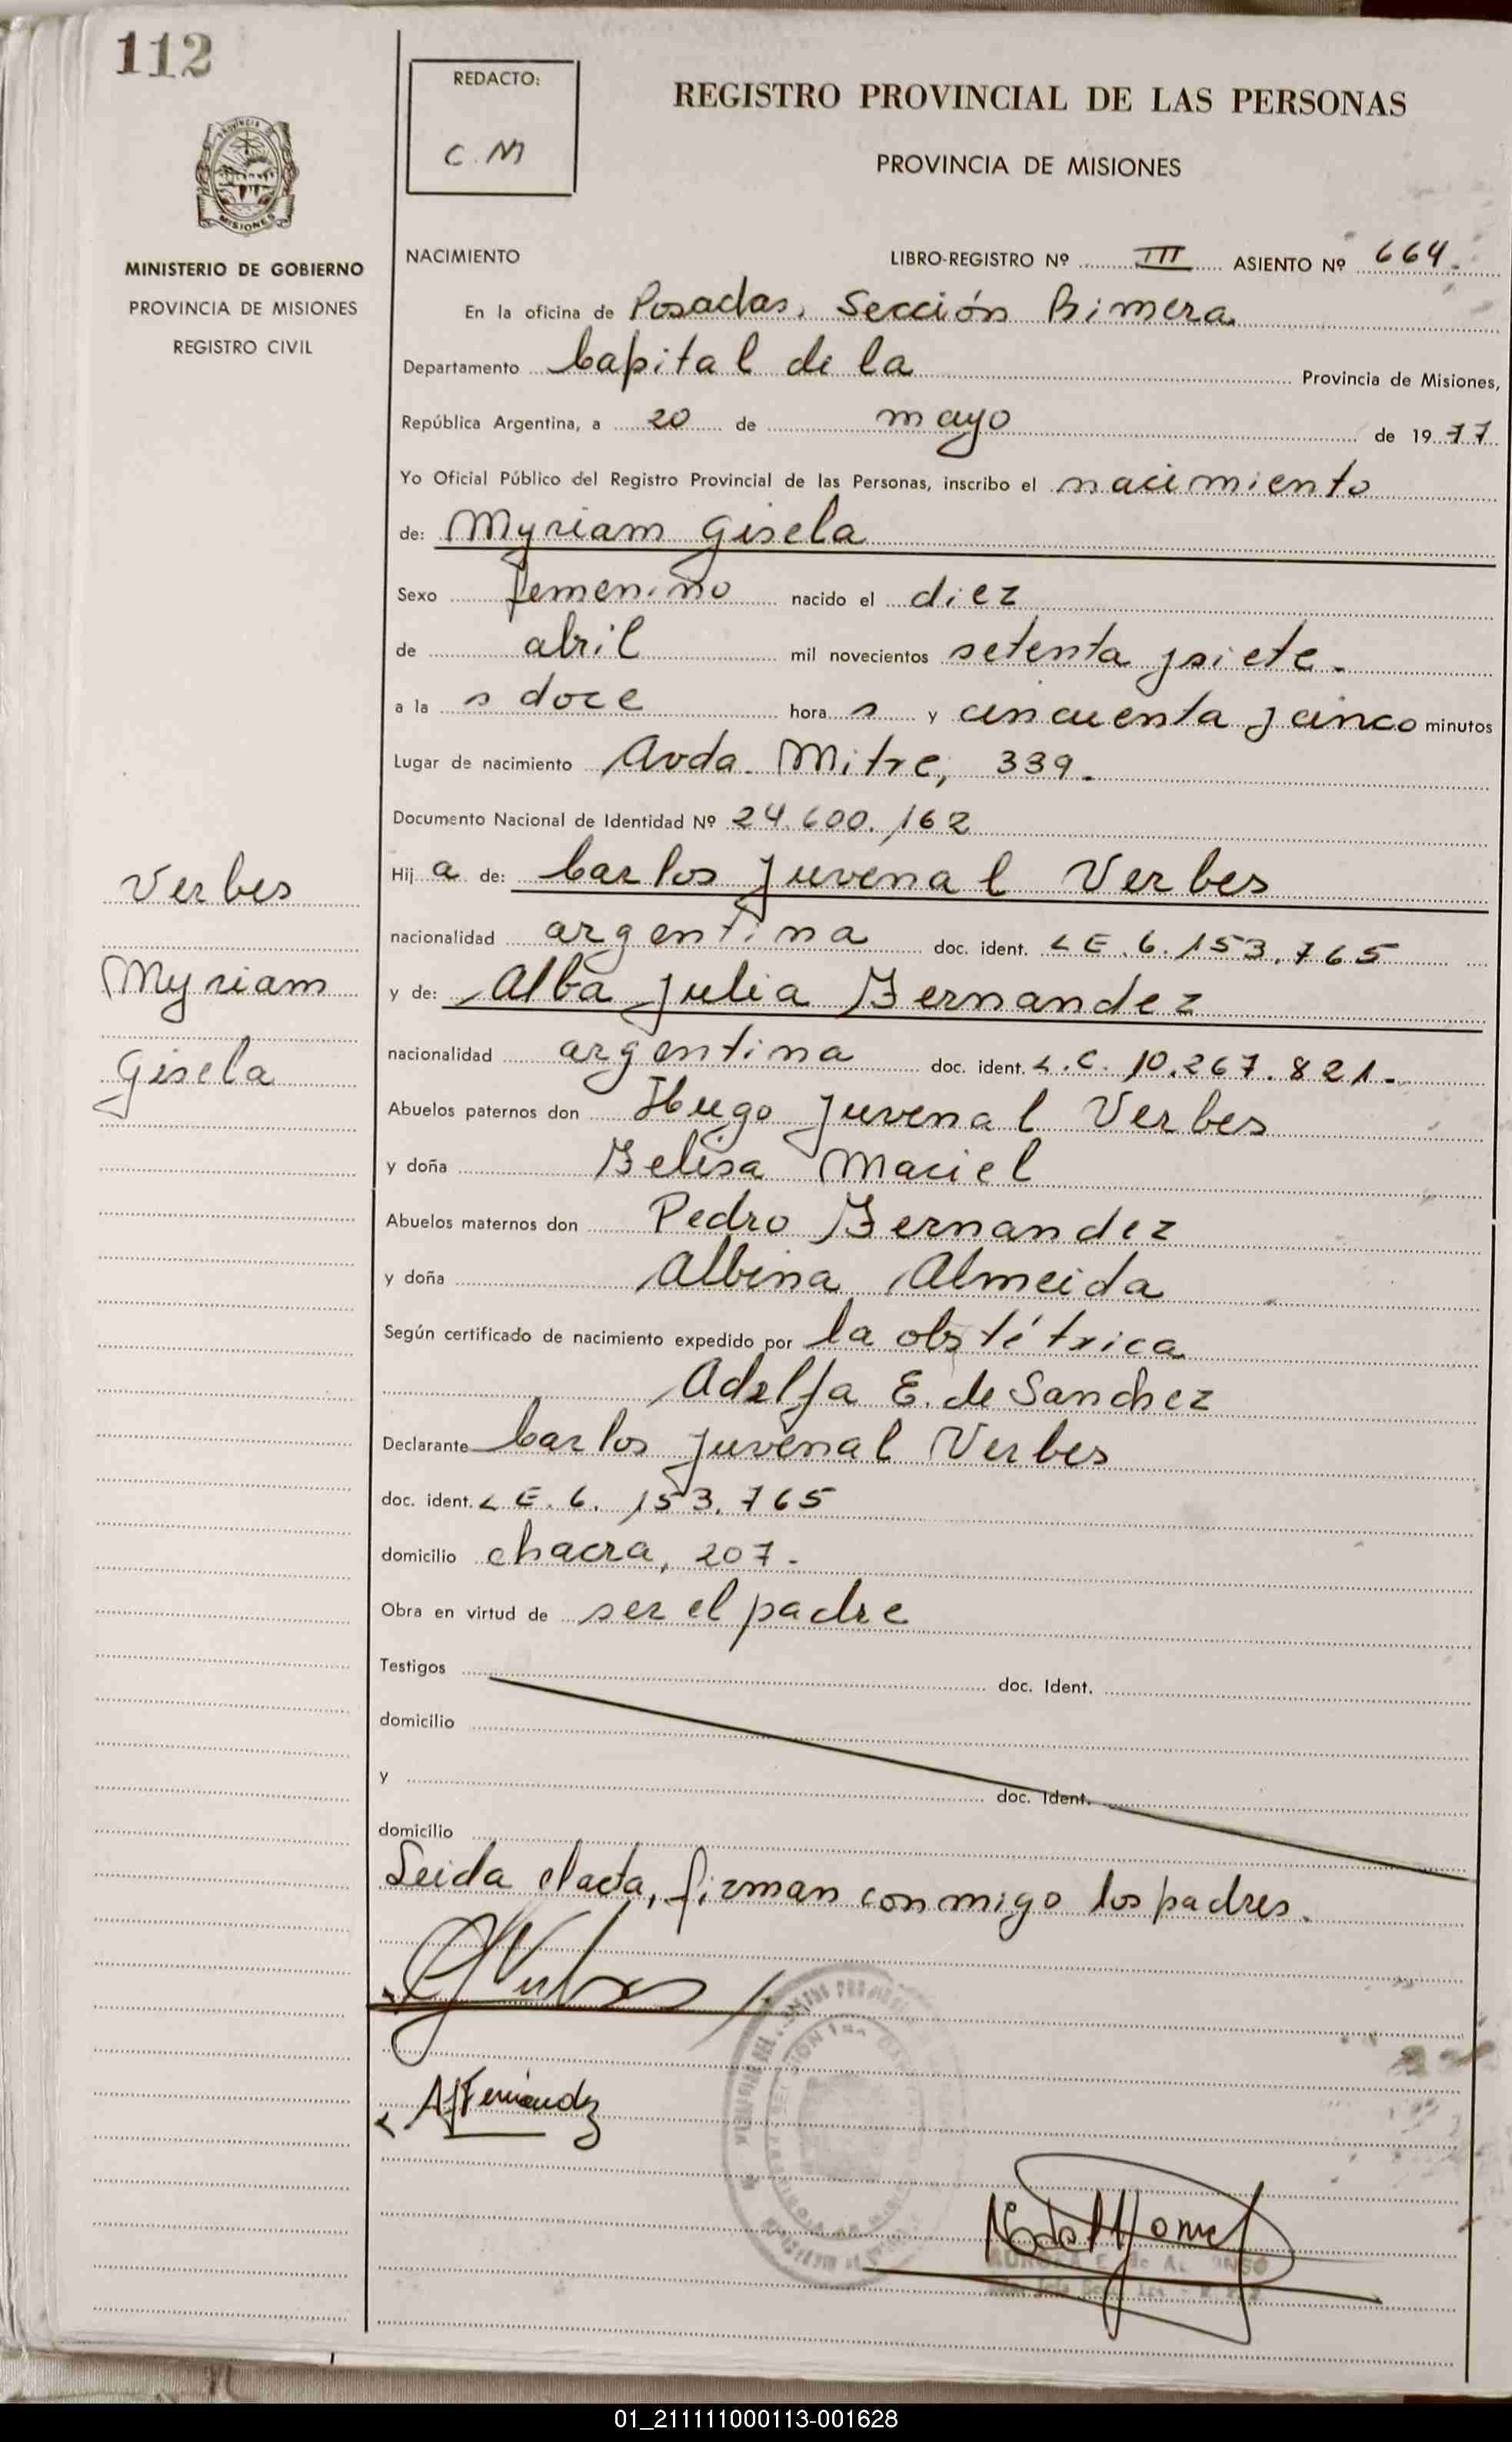 112
REDACTO:
C. M
REGISTRO PROVINCIAL DE LAS PERSONAS
PROVINCIA DE MISIONES
MISIONES
MINISTERIO DE GOBIERNO
PROVINCIA DE MISIONES
REGISTRO CIVIL
NACIMIENTO LIBRO-REGISTRO Nº III ASIENTO Nº 664.
En la oficina de Posadas, Sección Primera
Departamento Capital de la Provincia de Misiones,
República Argentina, a 20 de mayo de 1977
Yo Oficial Público del Registro Provincial de las Personas, inscribo el nacimiento
de: Myriam Gisela
Sexo femenino nacido el diez
de abril mil novecientos setenta y siete.
a la s doce hora s y cincuenta y cinco minutos
Lugar de nacimiento Avda. Mitre, 339.
Documento Nacional de Identidad Nº 24.600.162
Verbes
Myriam
Gisela
Hij a de: Carlos Juvenal Verbes
nacionalidad argentina doc. ident. L E. 6.153.765
y de: Alba Julia Fernandez
nacionalidad argentina doc. ident. L.C. 10.267.821.
Abuelos paternos don Hugo Juvenal Verbes
y doña Felisa Maciel
Abuelos maternos don Pedro Fernandez
y doña Albina Almeida
Según certificado de nacimiento expedido por la obstétrica
Adelfa E. de Sanchez
Declarante Carlos Juvenal Verbes
doc. ident. L E. 6. 153.765
domicilio chacra, 207.
Obra en virtud de ser el padre
Testigos doc. Ident.
domicilio
y doc. Ident.
domicilio
Leida el acta, firman conmigo los padres.
AJFernandz
01_211111000113-001628